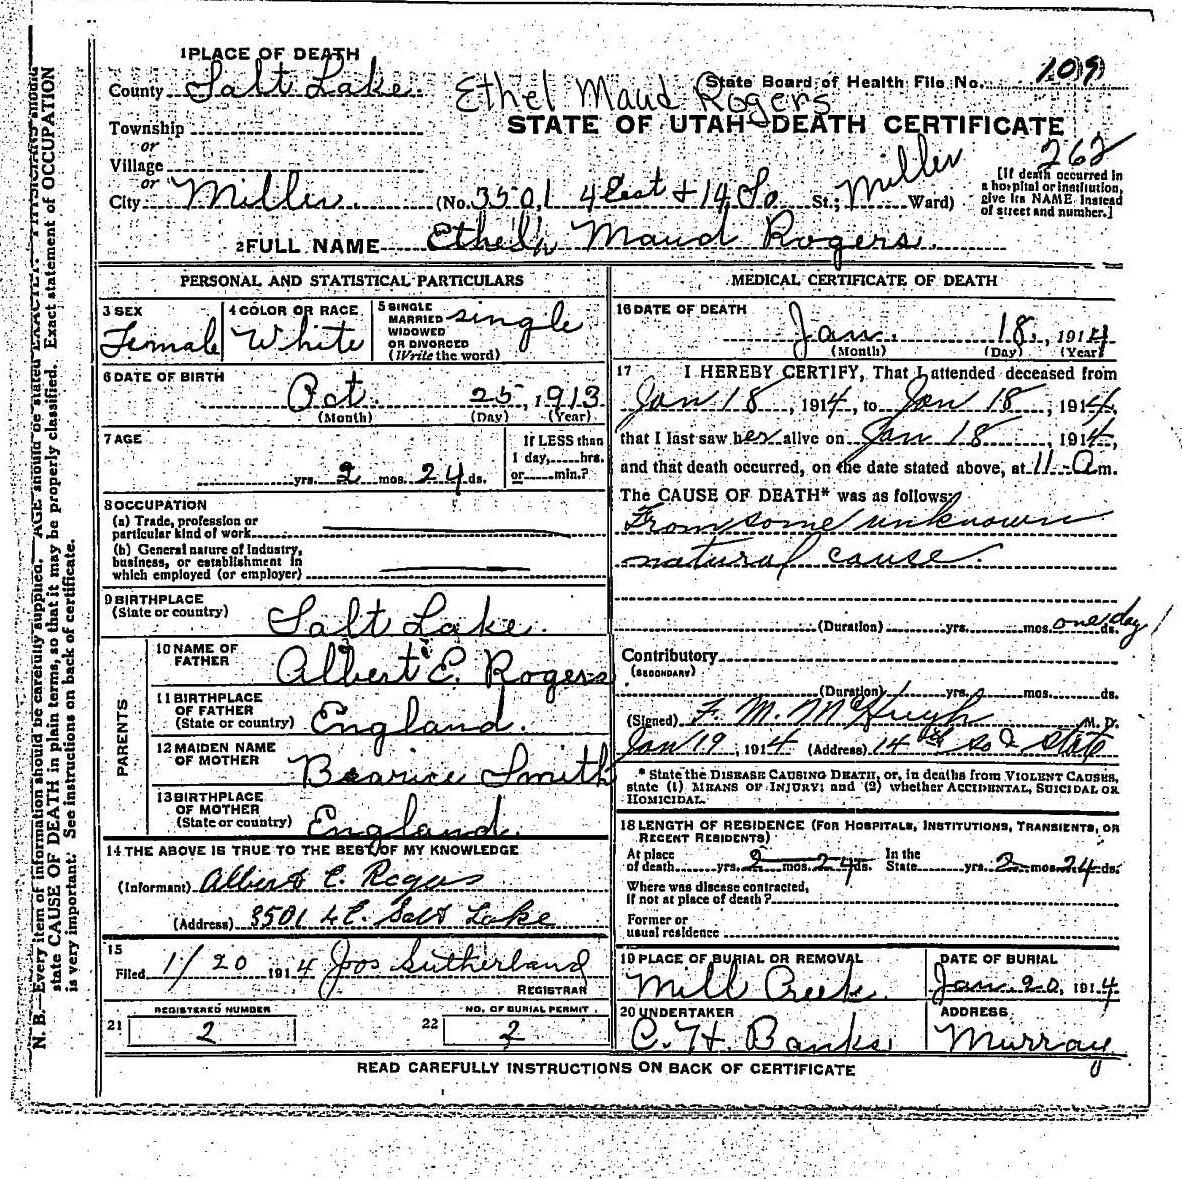 1 PLACE OF DEATH
County Salt Lake
Ethel Maud Rogers
State Board of Health File No. 109
STATE OF UTAH—DEATH CERTIFICATE
Township
or
Village
or
City Miller (No. 3501 4 East & 14 So St; Miller Ward)
262
[If death occurred in a hospital or institution, give its NAME instead of street and number.]
2 FULL NAME Ethel Maud Rogers.
PERSONAL AND STATISTICAL PARTICULARS
3 SEX
Female
4 COLOR OR RACE
White
5 SINGLE MARRIED WIDOWED OR DIVORCED (Write the word)
single
6 DATE OF BIRTH
Oct. 25, 1913
(Month) (Day) (Year)
7 AGE
yrs. 2 mos. 24 ds.
If LESS than 1 day, hrs. or min.?
8 OCCUPATION
(a) Trade, profession or particular kind of work
(b) General nature of Industry, business, or establishment in which employed (or employer)
9 BIRTHPLACE
(State or country) Salt Lake.
PARENTS
10 NAME OF FATHER Albert E. Rogers
11 BIRTHPLACE OF FATHER (State or country) England.
12 MAIDEN NAME OF MOTHER Bearice Smith
13 BIRTHPLACE OF MOTHER (State or country) England.
14 THE ABOVE IS TRUE TO THE BEST OF MY KNOWLEDGE
(Informant) Albert E. Rogers
(Address) 3501 4 E. Salt Lake
15
Filed 1/20 1914 Jos Sutherland
REGISTRAR
21 REGISTERED NUMBER 2
22 NO. OF BURIAL PERMIT. 2
MEDICAL CERTIFICATE OF DEATH
16 DATE OF DEATH
Jan. 18, 1914
(Month) (Day) (Year)
17 I HEREBY CERTIFY, That I attended deceased from
Jan 18, 1914, to Jan 18, 1914,
that I last saw her alive on Jan 18, 1914,
and that death occurred, on the date stated above, at 11 a m.
The CAUSE OF DEATH* was as follows:
From some unknown
natural cause.
(Duration) yrs. mos. one day ds.
Contributory
(SECONDARY)
(Duration) yrs. mos. ds.
(Signed) F. M. McHugh M. D.
Jan 19, 1914 (Address) 14th So & State
* State the DISEASE CAUSING DEATH, or, in deaths from VIOLENT CAUSES,
state (1) MEANS OF INJURY; and (2) whether ACCIDENTAL, SUICIDAL OR
HOMICIDAL.
18 LENGTH OF RESIDENCE (FOR HOSPITALS, INSTITUTIONS, TRANSIENTS, OR
RECENT RESIDENTS)
At place of death yrs. 2 mos. 24 ds. In the State yrs. 2 mos. 24 ds.
Where was disease contracted,
if not at place of death?
Former or
usual residence
19 PLACE OF BURIAL OR REMOVAL
Mill Creek.
DATE OF BURIAL
Jan. 20, 1914
20 UNDERTAKER
C. H. Banks
ADDRESS
Murray
READ CAREFULLY INSTRUCTIONS ON BACK OF CERTIFICATE
N. B.—Every item of information should be carefully supplied. AGE should be stated EXACTLY. PHYSICIANS should
state CAUSE OF DEATH in plain terms, so that it may be properly classified. Exact statement of OCCUPATION
is very important. See instructions on back of certificate.